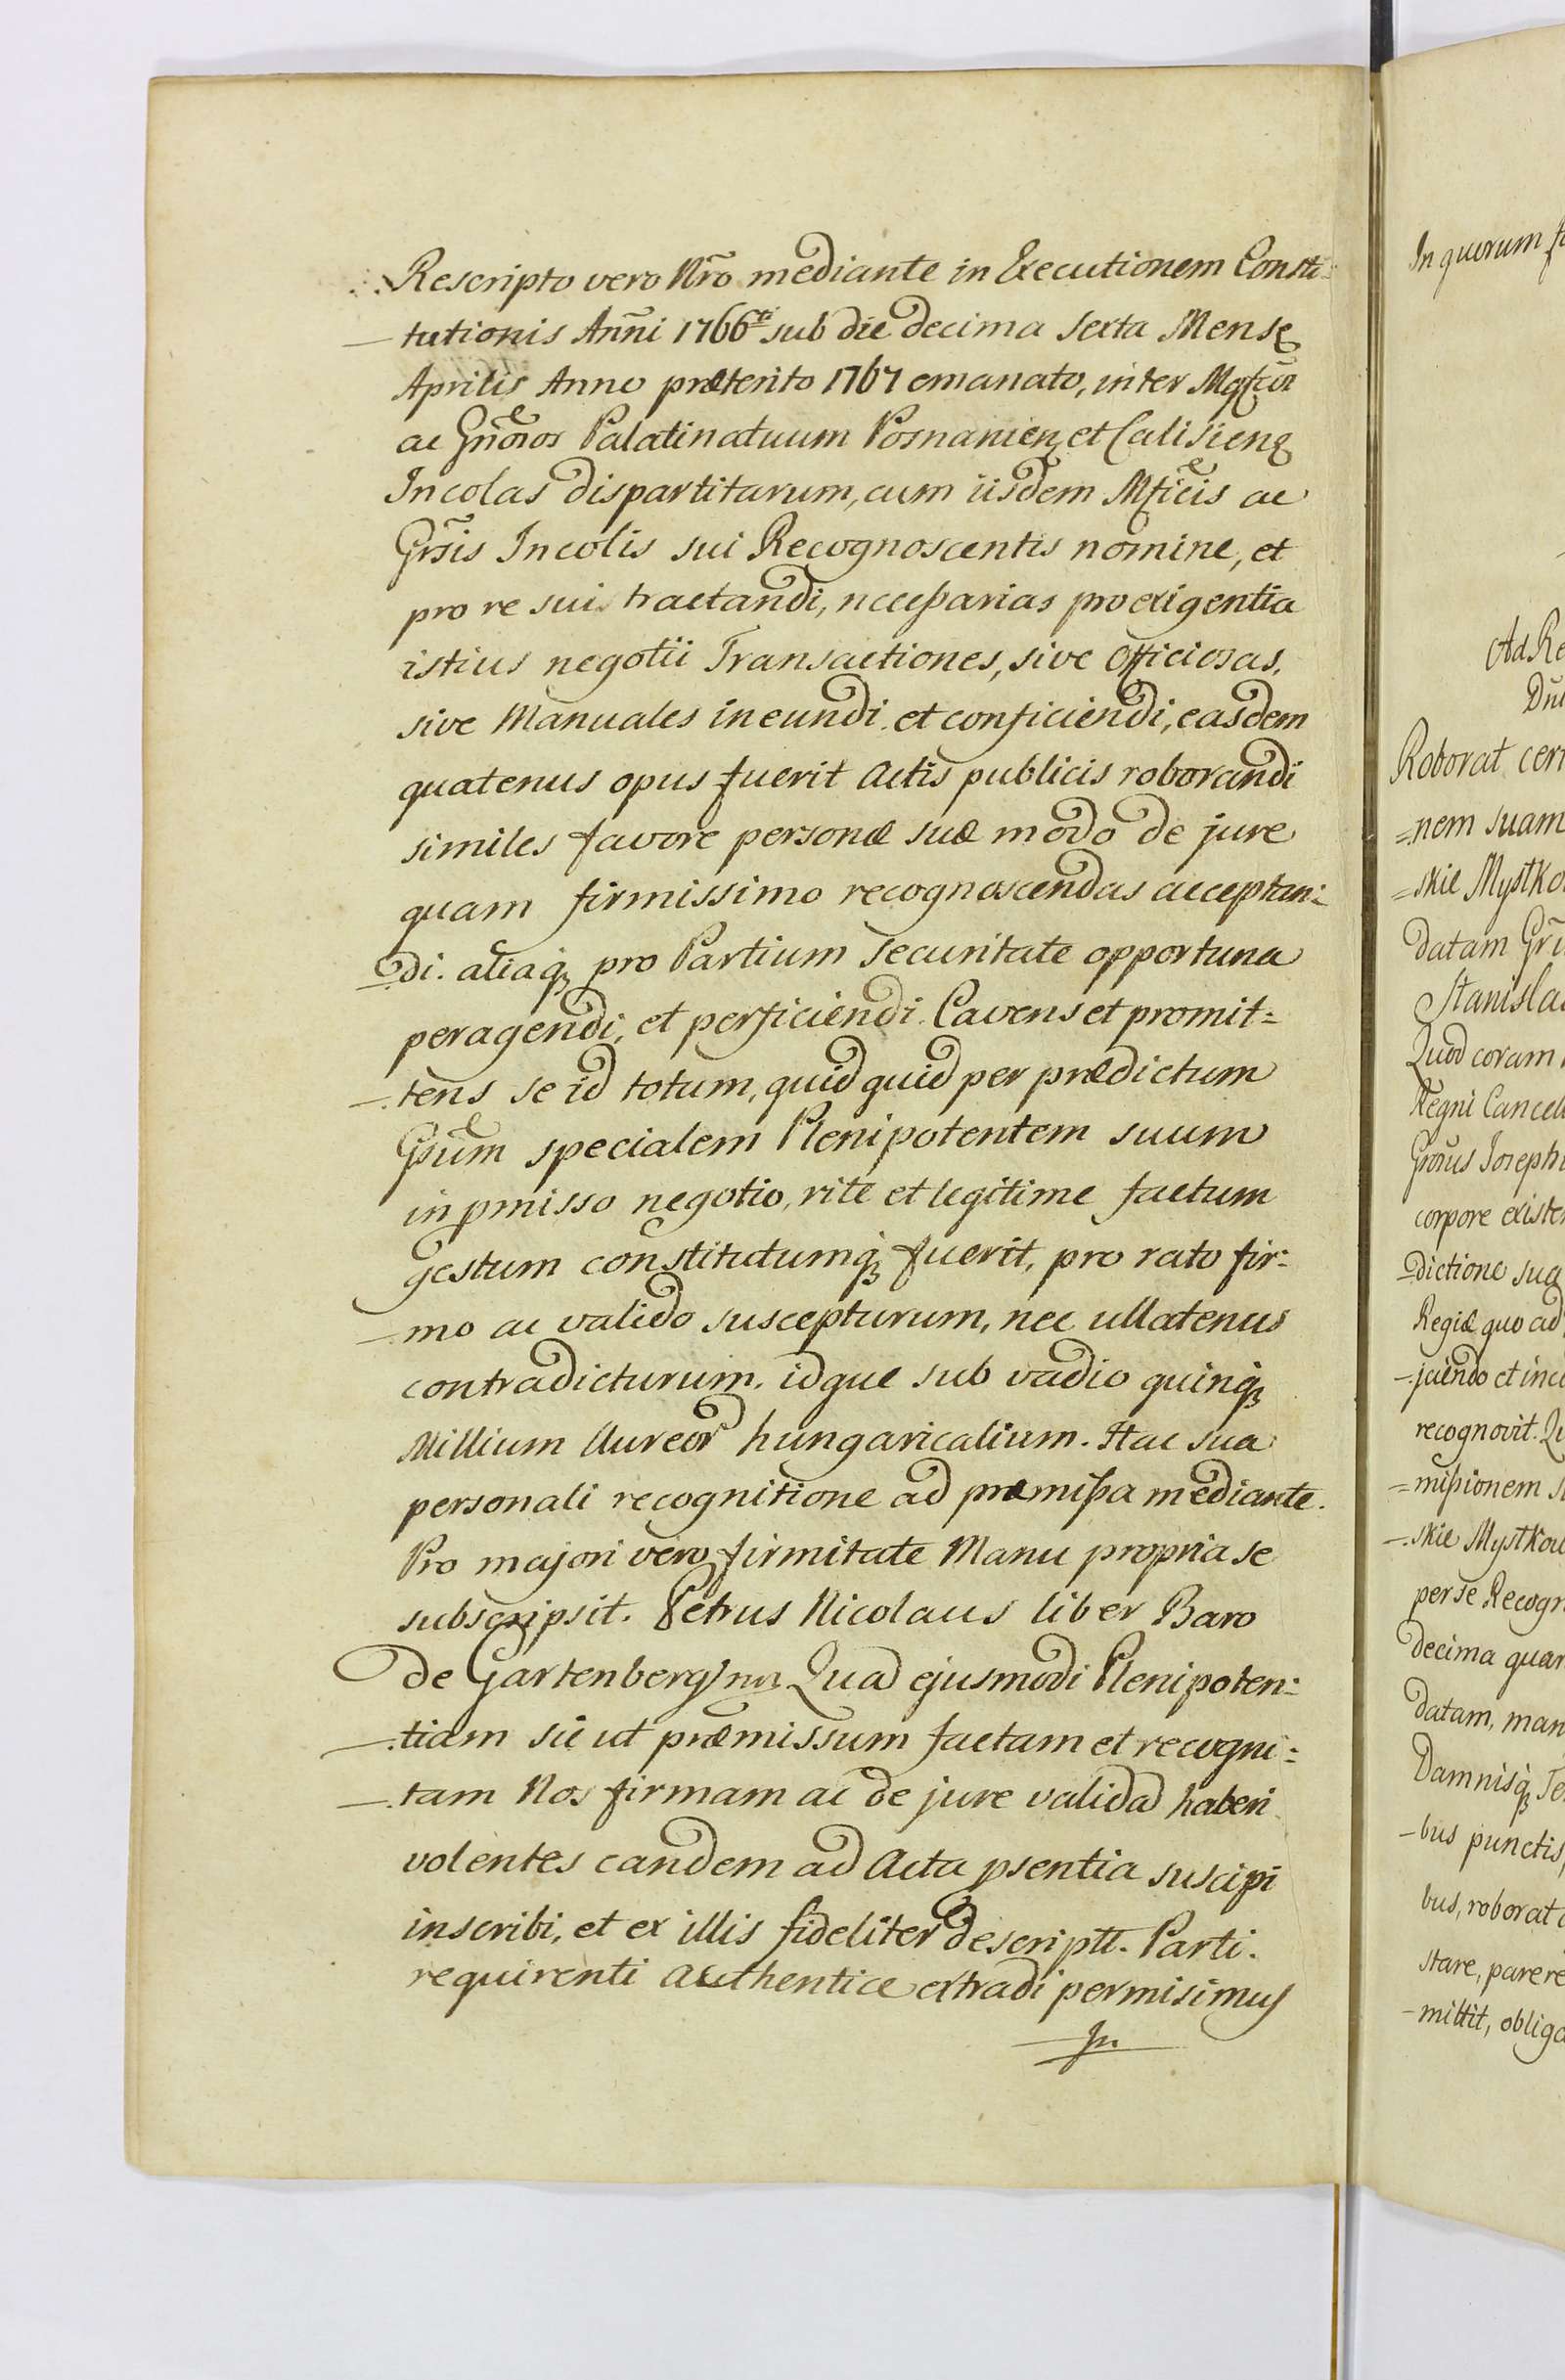 Rescripto vero Nr̃o mediante in Executionem Consti:
tutionis Añni 1766ti sub die decima Sexta Mensę
Aprilis Anno præterito 1767 emanato, inter
ac Gñosos Palatinatuum Posnanienȝ et Calisienȝ
Incolas dispartitarum, cum iisdem Mficis ac
Gr̃sis Incolis sui Recognoscentis nomine, et
pro re sui tractandi, necessarias pro exigentia
istius negotii Transactiones, sive Officiosas,
sive Manuales ineundi et conficiendi, easdem
quatenus opus fuerit Actis publicis roborandi
similes favore personæ suæ modo de jure
quam firmissimo recognoscendas acceptan:
di. aliaqȝ pro Partium Securitate opportuna
peragendi, et perficiendi. Cavens et promit=
tens se id totum, quid quid per prædictum
Gsũm specialem Plenipotentem suum
in pmisso negotio, rite et legitime factum
gestum constitutumqȝ fuerit, pro rato fir:
mo ac valido suscepturum, nec ullatenus
contradicturum, idque sub vadio quinqȝ
Millium Aureor̃ hungaricalium. Hac sua
personali recognitione ad præmissa mediante.
Pro majori vero firmitate Manu propria se
subscripsit. Petrus Nicolaus liber Baro
de Gartenberg mp Quad ejusmodi Plenipoten:
tiam sic ut præmissum factam et recogni:
tam Nos firmam ac de jure validad haberi
volentes eandem ad Acta psentia suscipi
inscribi, et ex illis fideliter descriptt. Parti
requirenti authentice extradi permisimus
In
In quorum
Ad Re
Roborat cer
nem suam
skie Mystko
datam Gr̃
Stanisla
Quod coram
Regni Cancel
Gr̃osus Joseph
corpore existe
dictione sua
Regiæ quo ad
jciendo et inc
recognovit. Q
missionem s
skie Mystkow
per se Recogn
decima quar
datam, man
Damnisqȝ Te
bus punctis,
bus, roborat
stare, parere
mittit, obliga